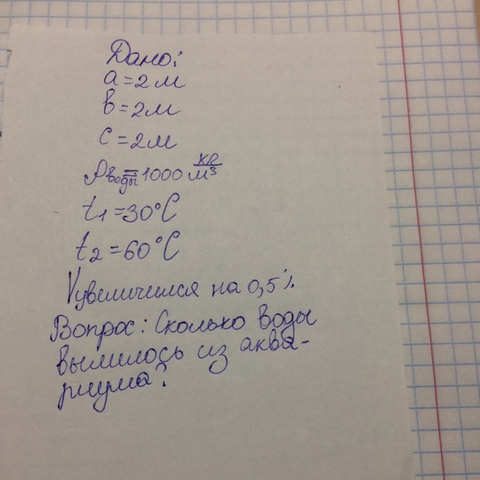 Дано:
a = 2 м
в = 2 м
c = 2 м
ρводы = 1000 кг/м³
t1 = 30°C
t2 = 60°C
V увеличился на 0,5%
Вопрос: Сколько воды
вылилось из аква-
риума?